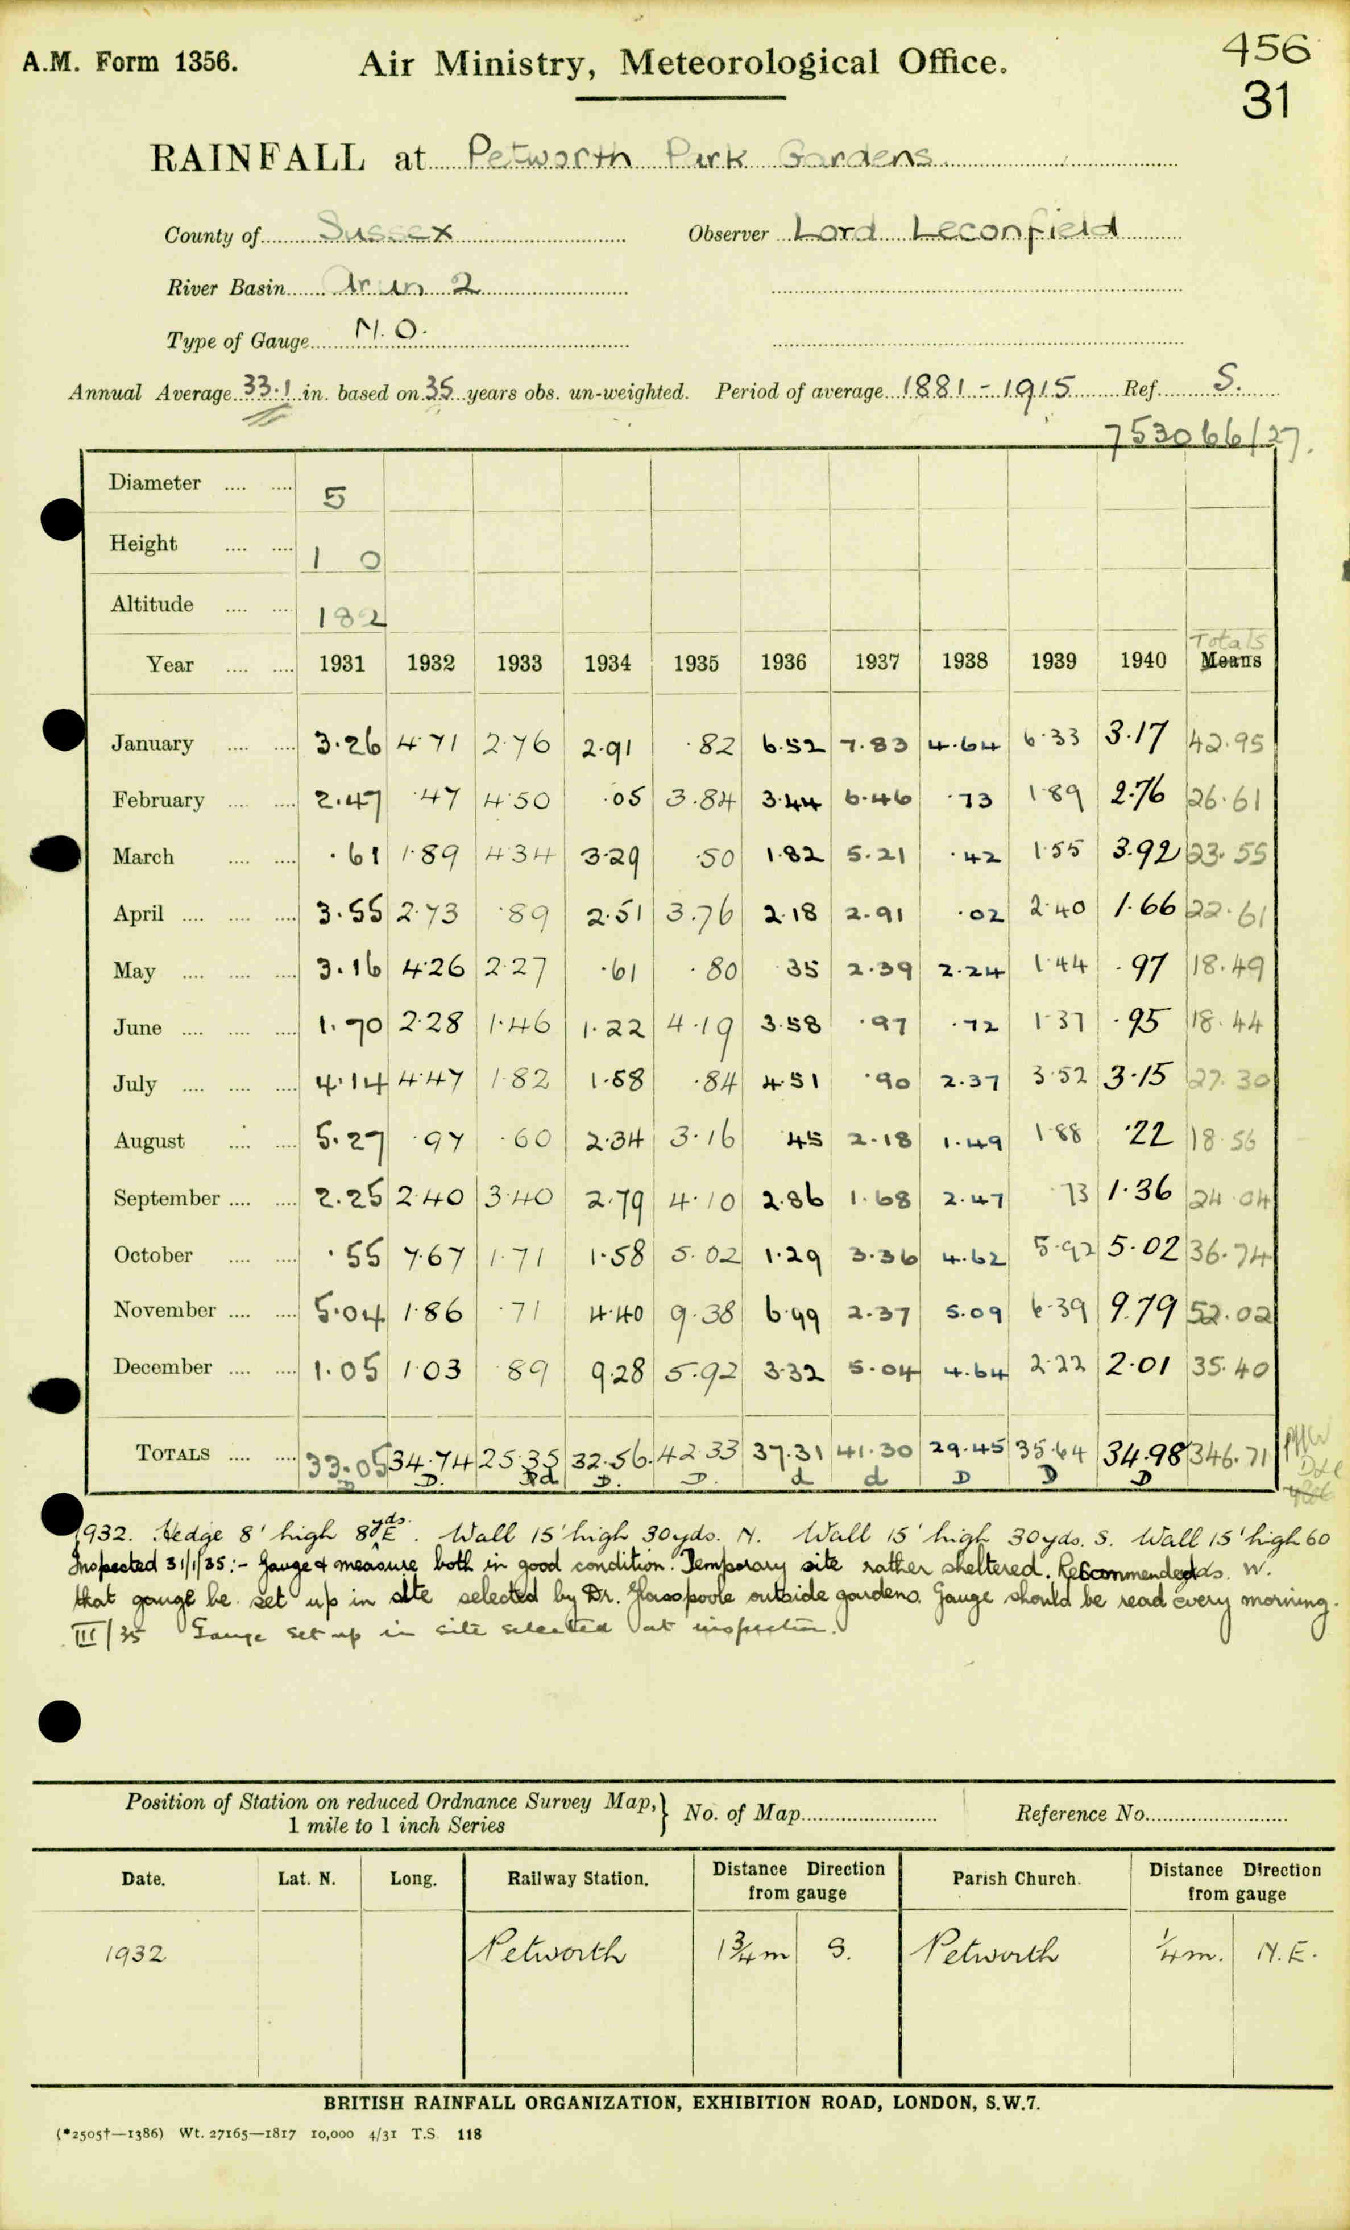 A.M. Form 1356.
Air Ministry, Meteorological Office.
456
31
RAINFALL at Petworth Park Gardens
County of Sussex Observer Lord Leconfield
River Basin Arun 2
Type of Gauge M.O.
Annual Average 33.1 in. based on 35 years obs. un-weighted. Period of average 1881-1915 Ref. S.
753066/27.
Diameter 5
Height 1 0
Altitude 182
Totals
Year 1931 1932 1933 1934 1935 1936 1937 1938 1939 1940 Means
January 3.26 4.71 2.76 2.91 .82 6.52 7.83 4.64 6.33 3.17 42.95
February 2.47 .47 4.50 .05 3.84 3.44 6.46 .73 1.89 2.76 26.61
March .61 1.89 4.34 3.29 .50 1.82 5.21 .42 1.55 3.92 23.55
April 3.55 2.73 .89 2.51 3.76 2.18 2.91 .02 2.40 1.66 22.61
May 3.16 4.26 2.27 .61 .80 35 2.39 2.24 1.44 .97 18.49
June 1.70 2.28 1.46 1.22 4.19 3.58 .97 .72 1.37 .95 18.44
July 4.14 4.47 1.82 1.58 .84 4.51 .90 2.37 3.52 3.15 27.30
August 5.27 .97 .60 2.34 3.16 45 2.18 1.49 1.88 .22 18.56
September 2.25 2.40 3.40 2.79 4.10 2.86 1.68 2.47 .73 1.36 24.04
October .55 7.67 1.71 1.58 5.02 1.29 3.36 4.62 5.92 5.02 36.74
November 5.04 1.86 .71 4.40 9.38 6.99 2.37 5.09 6.39 9.79 52.02
December 1.05 1.03 .89 9.28 5.92 3.32 5.04 4.64 2.22 2.01 35.40
TOTALS 33.05 34.74 25.35 32.56 42.33 37.31 41.30 29.45 35.64 34.98 346.71
D D. d D. D. d d D D D
1932. Hedge 8' high 8yds. E. Wall 15' high 30yds. N. Wall 15' high 30yds. S. Wall 15' high 60
yds. W.
Inspected 31/1/35:- Gauge & measure both in good condition. Temporary site rather sheltered. Recommended
that gauge be set up in site selected by Dr. Glasspoole outside gardens. Gauge should be read every morning.
III/35 Gauge set up in site selected at inspection.
Position of Station on reduced Ordnance Survey Map, 1 mile to 1 inch Series } No. of Map Reference No.
Date. Lat. N. Long. Railway Station. Distance Direction from gauge Parish Church. Distance Direction from gauge
1932 Petworth 1¾m S. Petworth ¼m. N.E.
BRITISH RAINFALL ORGANIZATION, EXHIBITION ROAD, LONDON, S.W.7.
(*2505†—1386) Wt. 27165—1817 10,000 4/31 T.S. 118